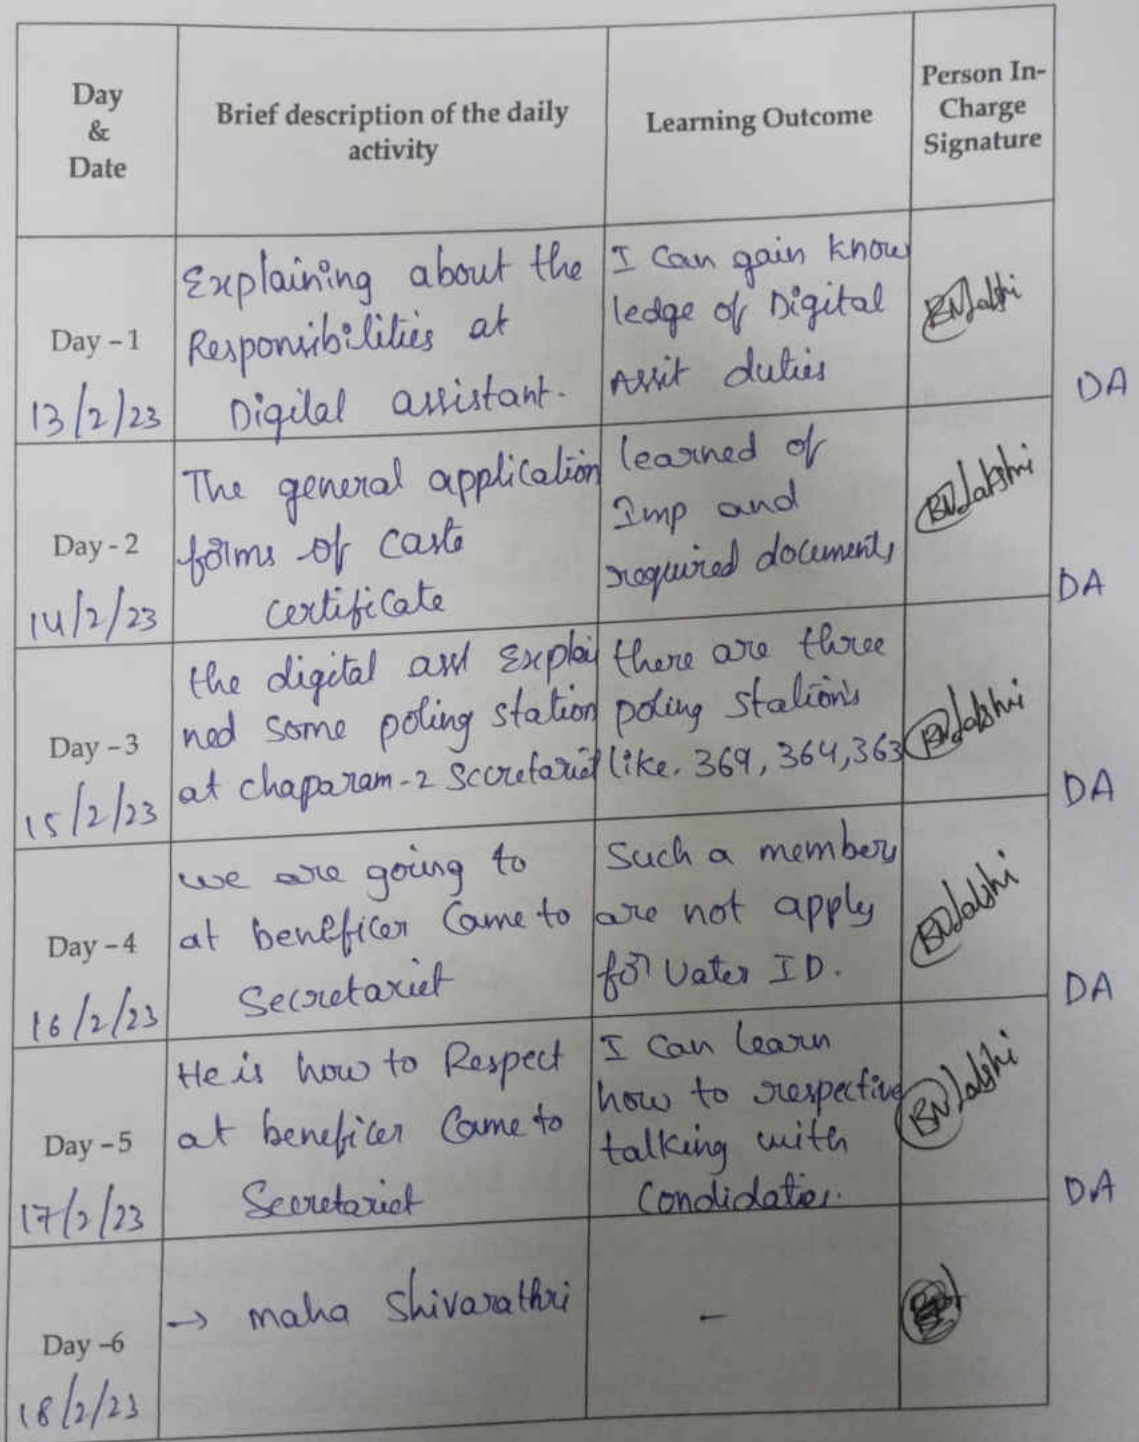 Day
&
Date
Brief description of the daily
activity
Learning Outcome
Person In-
Charge
Signature
Day - 1
13/2/23
Explaining about the
Responsibilities at
Digital assistant.
I Can gain know
ledge of Digital
Assit duties
DA
Day - 2
14/2/23
The general application
forms of caste
certificate
learned of
Imp and
required documents
DA
Day - 3
15/2/23
the digital asst Explai
ned some poling station
at chaparam-2 Secretariet
there are three
poling station's
like. 369, 364, 363
DA
Day - 4
16/2/23
we are going to
at beneficer Came to
Secretariet
Such a members
are not apply
for Vater ID.
DA
Day - 5
17/2/23
He is how to Respect
at beneficer Came to
Secretariet
I Can learn
how to respective
talking with
Condidaties.
DA
Day -6
18/2/23
→ maha Shivarathri
-